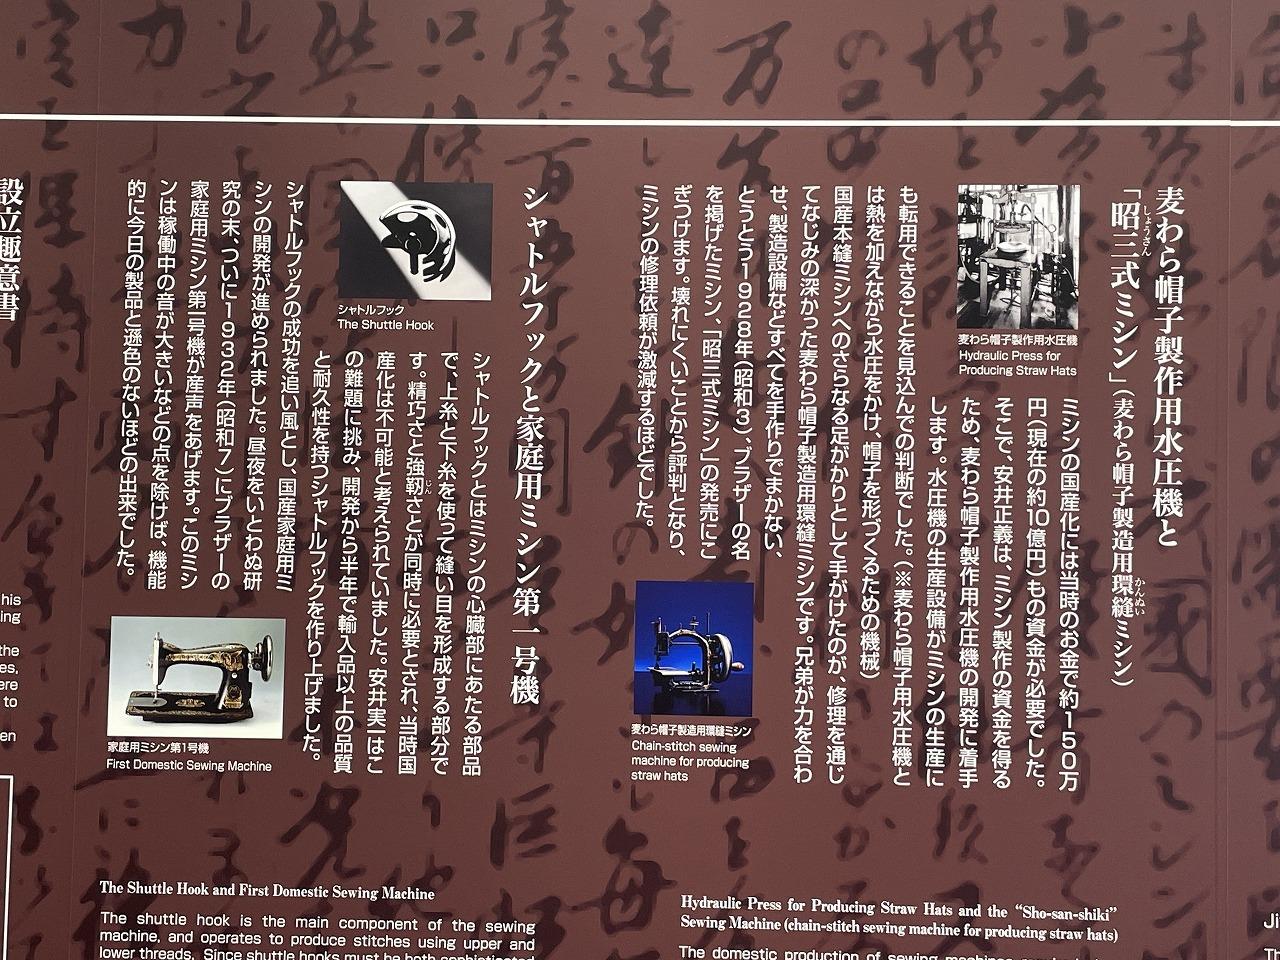 麦わら帽子製作用水圧機と
「昭三式ミシン」(麦わら帽子製造用環縫ミシン)
しょうさん
かんぬい
麦わら帽子製作用水圧機
Hydraulic Press for
Producing Straw Hats
ミシンの国産化には当時のお金で約150万
円(現在の約10億円)もの資金が必要でした。
そこで、安井正義は、ミシン製作の資金を得る
ため、麦わら帽子製作用水圧機の開発に着手
します。水圧機の生産設備がミシンの生産に
も転用できることを見込んでの判断でした。(※麦わら帽子用水圧機と
は熱を加えながら水圧をかけ、帽子を形づくるための機械)
国産本縫ミシンへのさらなる足がかりとして手がけたのが、修理を通じ
てなじみの深かった麦わら帽子製造用環縫ミシンです。兄弟が力を合わ
せ、製造設備などすべてを手作りでまかない、
とうとう1928年(昭和3)、ブラザーの名
を掲げたミシン、「昭三式ミシン」の発売にこ
ぎつけます。壊れにくいことから評判となり、
ミシンの修理依頼が激減するほどでした。
麦わら帽子製造用環縫ミシン
Chain-stitch sewing
machine for producing
straw hats
シャトルフックと家庭用ミシン第一号機
シャトルフック
The Shuttle Hook
シャトルフックとはミシンの心臓部にあたる部品
で、上糸と下糸を使って縫い目を形成する部分で
す。精巧さと強靭さとが同時に必要とされ、当時国
じん
産化は不可能と考えられていました。安井実一はこ
の難題に挑み、開発から半年で輸入品以上の品質
と耐久性を持つシャトルフックを作り上げました。
シャトルフックの成功を追い風とし、国産家庭用ミ
シンの開発が進められました。昼夜をいとわぬ研
究の末、ついに1932年(昭和7)にブラザーの
家庭用ミシン第一号機が産声をあげます。このミシ
ンは稼働中の音が大きいなどの点を除けば、機能
的に今日の製品と遜色のないほどの出来でした。
家庭用ミシン第1号機
First Domestic Sewing Machine
設立趣意書
his
ing
the
es,
ere
to
en
The Shuttle Hook and First Domestic Sewing Machine
The shuttle hook is the main component of the sewing
machine, and operates to produce stitches using upper and
lower threads. Since shuttle hooks must be both sophisticated
Hydraulic Press for Producing Straw Hats and the “Sho-san-shiki”
Sewing Machine (chain-stitch sewing machine for producing straw hats)
The domestic production of sewing machines required